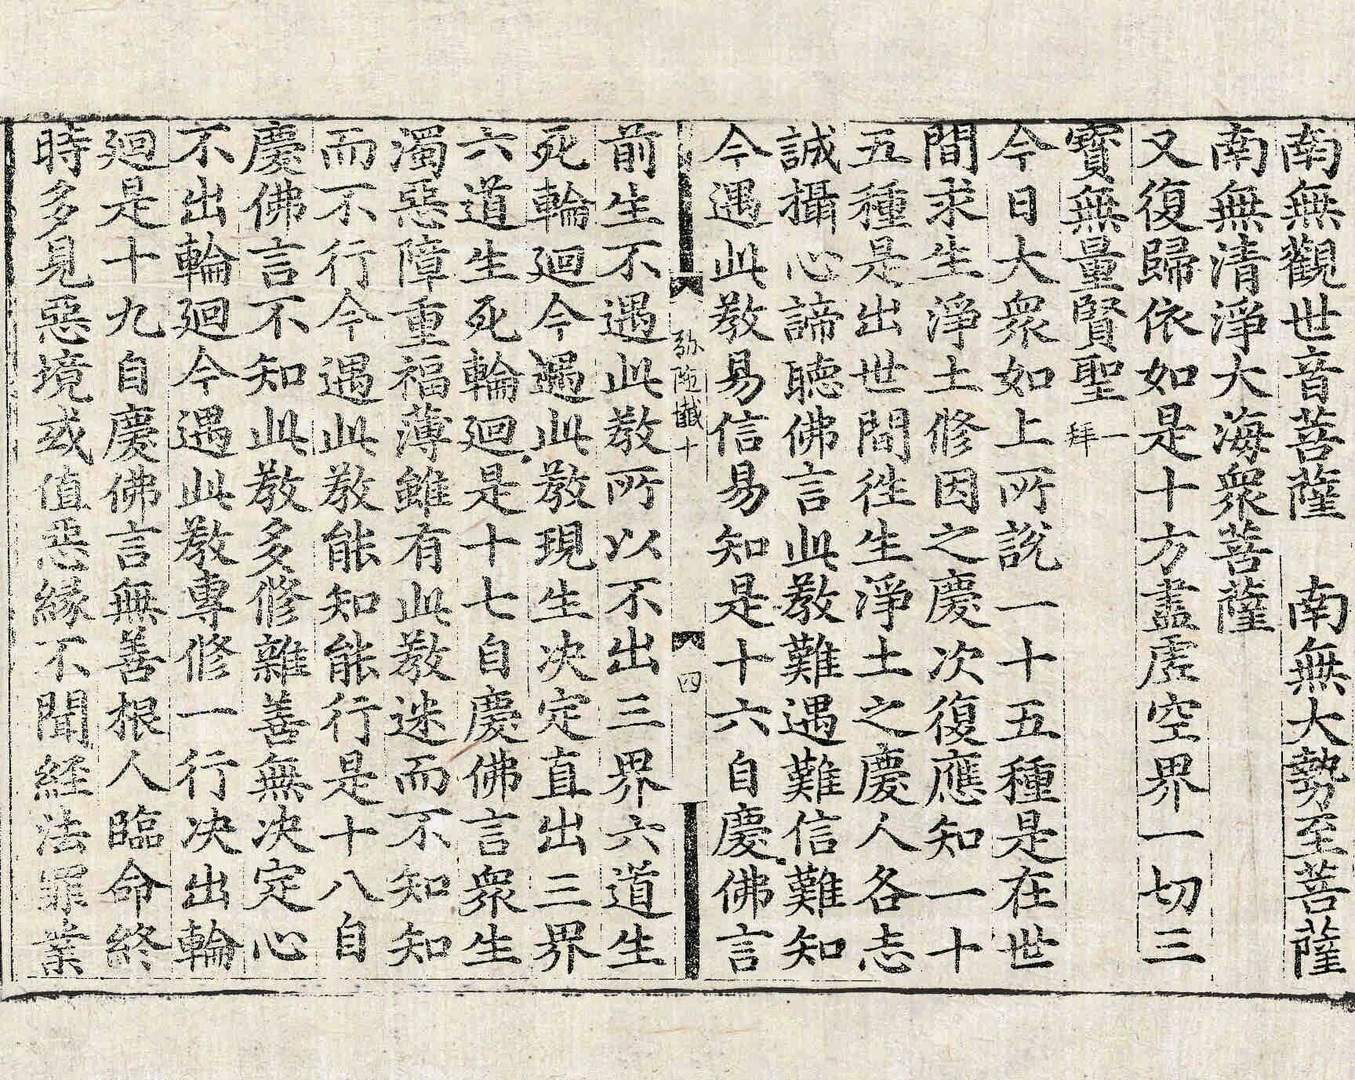 南無觀世音菩薩　南無大勢至菩薩
南無清淨大海衆菩薩
又復歸依如是十方盡虛空界一切三
寳無量賢聖一拜
今日大衆如上所說一十五種是在世
間求生淨土修因之慶次復應知一十
五種是出世間徃生淨土之慶人各志
誠攝心諦聽佛言此教難遇難信難知
今遇此教易信易知是十六自慶佛言
弥陁懺十
四
前生不遇此教所以不出三界六道生
死輪廻今遇此教現生决定直出三界
六道生死輪廻是十七自慶佛言衆生
濁惡障重福薄雖有此教迷而不知知
而不行今遇此教能知能行是十八自
慶佛言不知此教多修雜善無决定心
不出輪廻今遇此教專修一行决出輪
廻是十九自慶佛言無善根人臨命終
時多見惡境或值惡緣不聞経法罪業